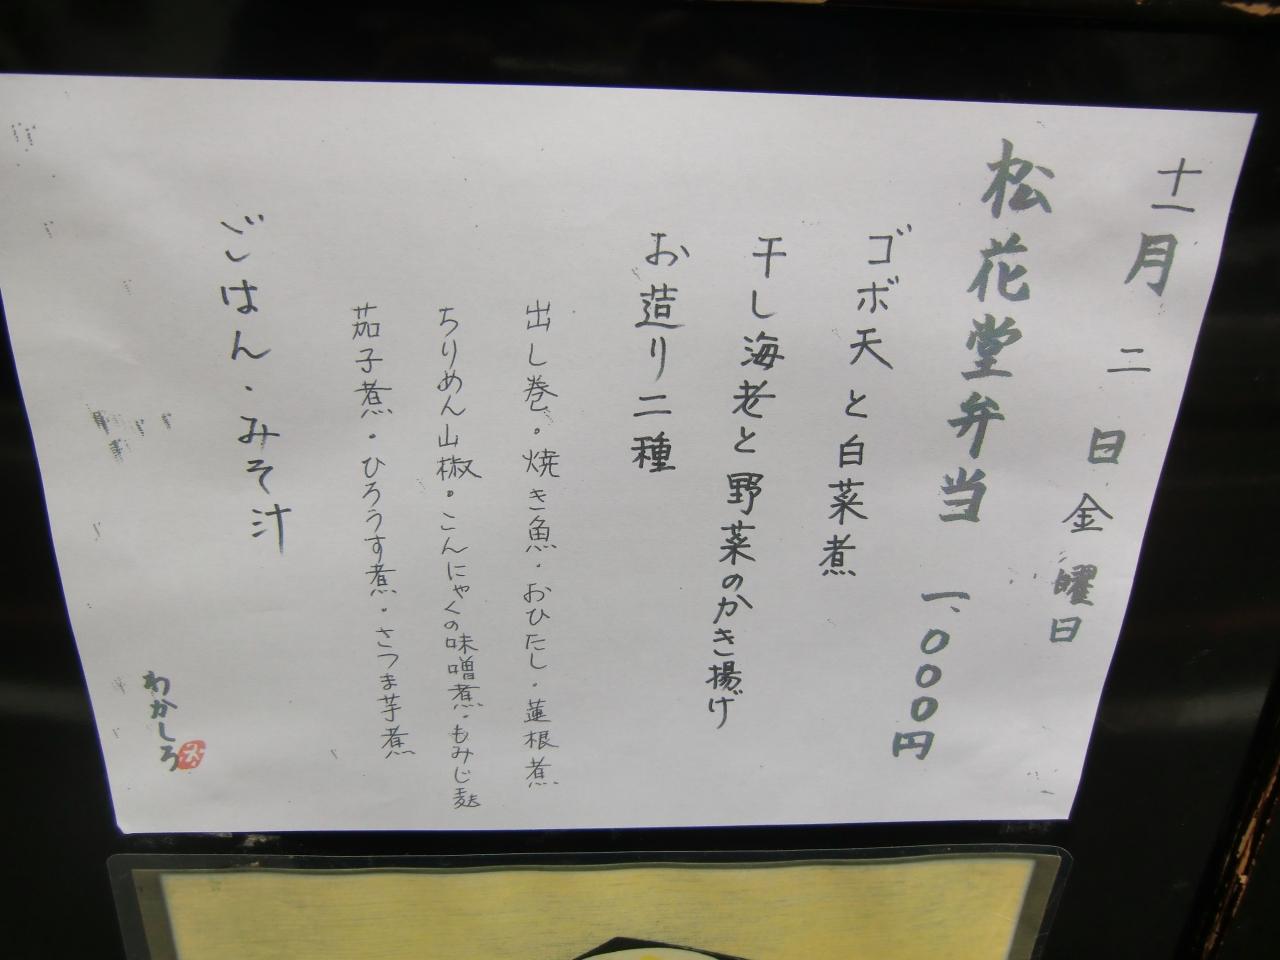 十一月二日金曜日
松花堂弁当 一、〇〇〇円
ゴボ天と白菜煮
干し海老と野菜のかき揚げ
お造り二種
出し巻・焼き魚・おひたし・蓮根煮
ちりめん山椒・こんにゃくの味噌煮・もみじ麩
茄子煮・ひろうす煮・さつま芋煮
ごはん・みそ汁
わかしろ